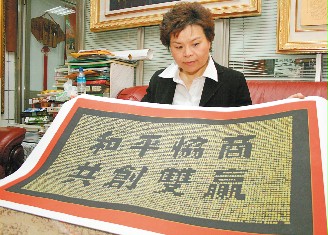 和平協商
共創雙贏